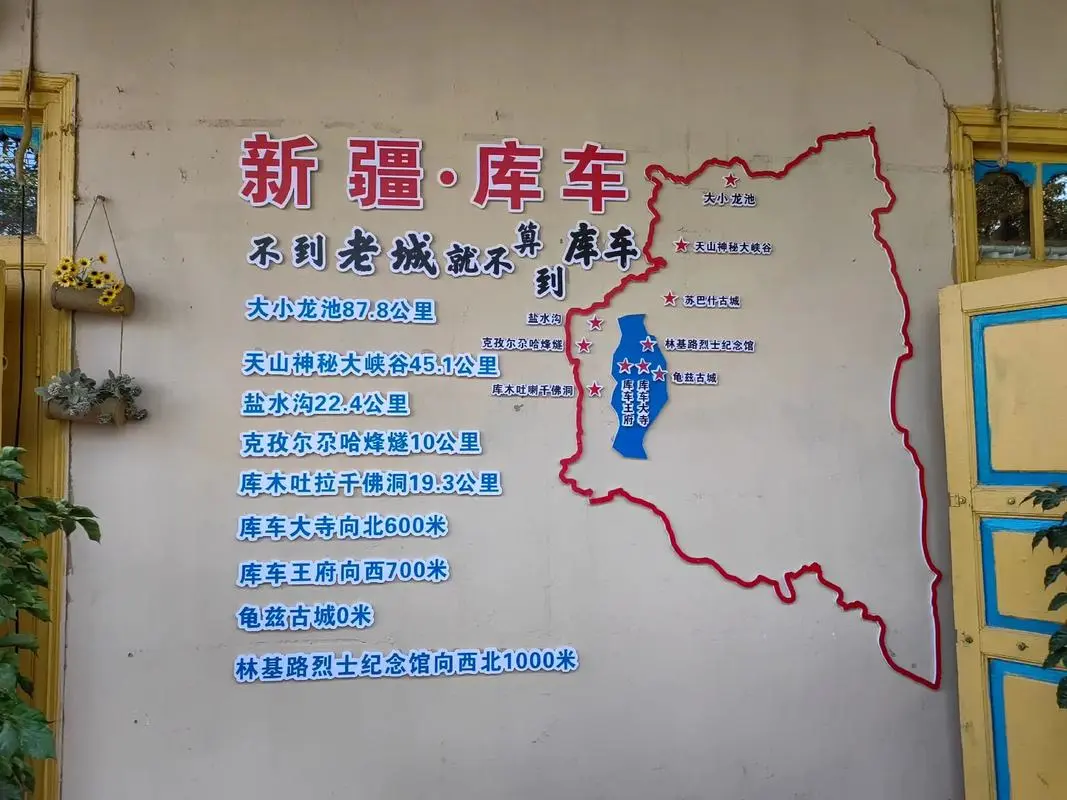 新疆·库车
不到老城就不算到库车
大小龙池87.8公里
天山神秘大峡谷45.1公里
盐水沟22.4公里
克孜尔尕哈烽燧10公里
库木吐拉千佛洞19.3公里
库车大寺向北600米
库车王府向西700米
龟兹古城0米
林基路烈士纪念馆向西北1000米
大小龙池
天山神秘大峡谷
苏巴什古城
盐水沟
克孜尔尕哈烽燧
林基路烈士纪念馆
龟兹古城
库木吐喇千佛洞
库车王府
库车大寺